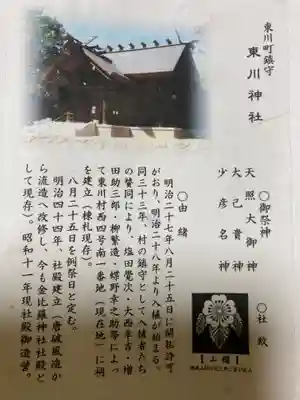 東川町鎮守
東川神社
○御祭神
天照大御神
大己貴神
少彦名神
○社紋
○由緒
明治二十七年八月二十五日に開拓許可
がおり、明治二十八年より入植が始まる。
同三十三年、村の鎮守として入植者たち
の賛同により、塩田覺次・大西幸吉・増
田助三郎・柳繁造・蝶野幸之助等によっ
て東川村西四号南一番地（現在地）に祠
を建立（棟札現存）。
八月二十五日を例祭日と定む。
明治四十四年、社殿建立（唐破風造か
ら流造へ改修し、今も金比羅神社社殿と
して現存）。昭和十一年現社殿御造営。